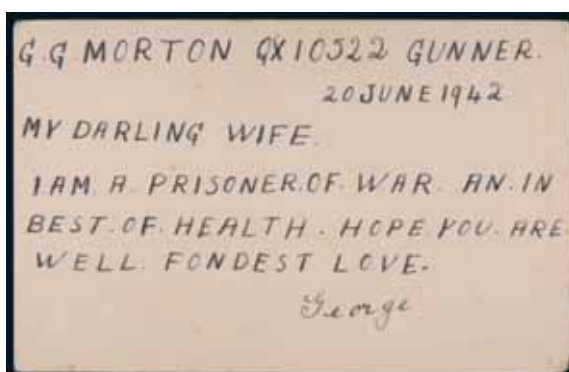 G.G MORTON QX10522 GUNNER.
20 JUNE 1942
MY DARLING WIFE.
I AM. A. PRISONER.OF. WAR. AN. IN
BEST. OF. HEALTH. HOPE YOU. ARE
WELL. FONDEST LOVE.
George